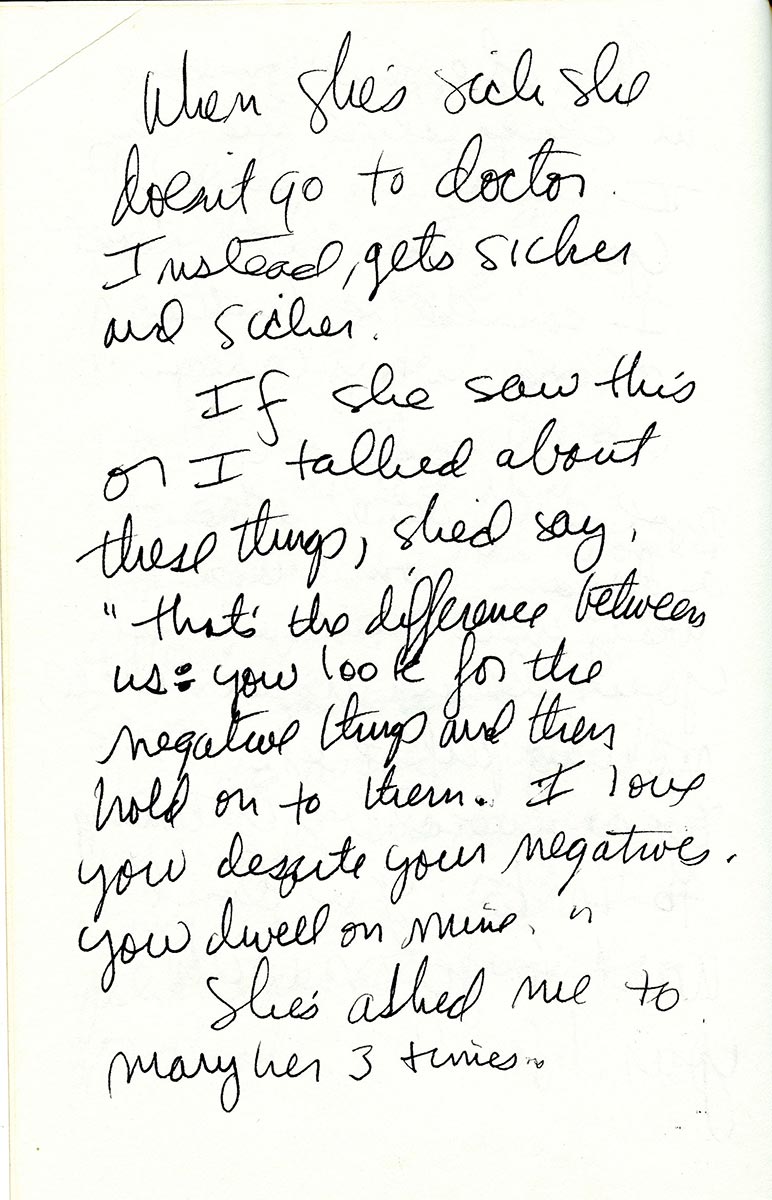 When she's sick she
doesn't go to doctor.
Instead, gets sicker
and sicker.
If she saw this
or I talked about
these things, she'd say,
"that's the difference between
us: you look for the
negative things and then
hold on to them. I love
you despite your negatives.
you dwell on mine."
She's asked me to
mary her 3 times.